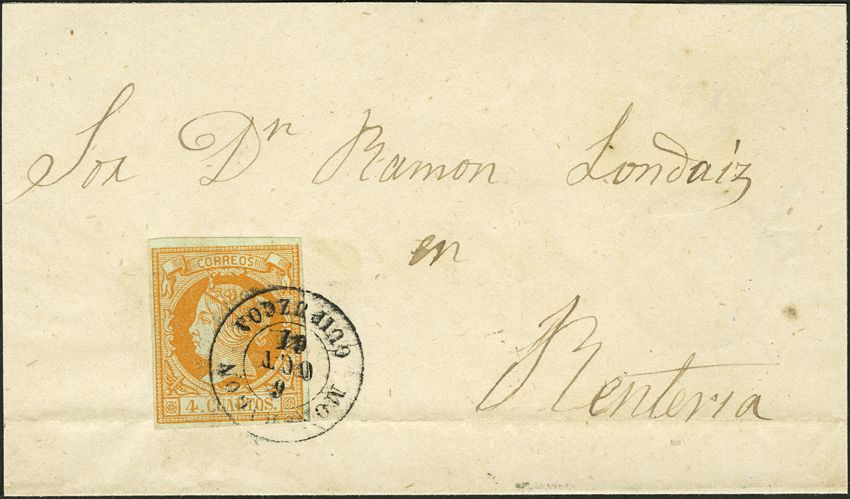 Sor Dn Ramon Londaiz
en
Renteria
CORREOS
4. CUARTOS.
GUIPUZCOA
61
OCT